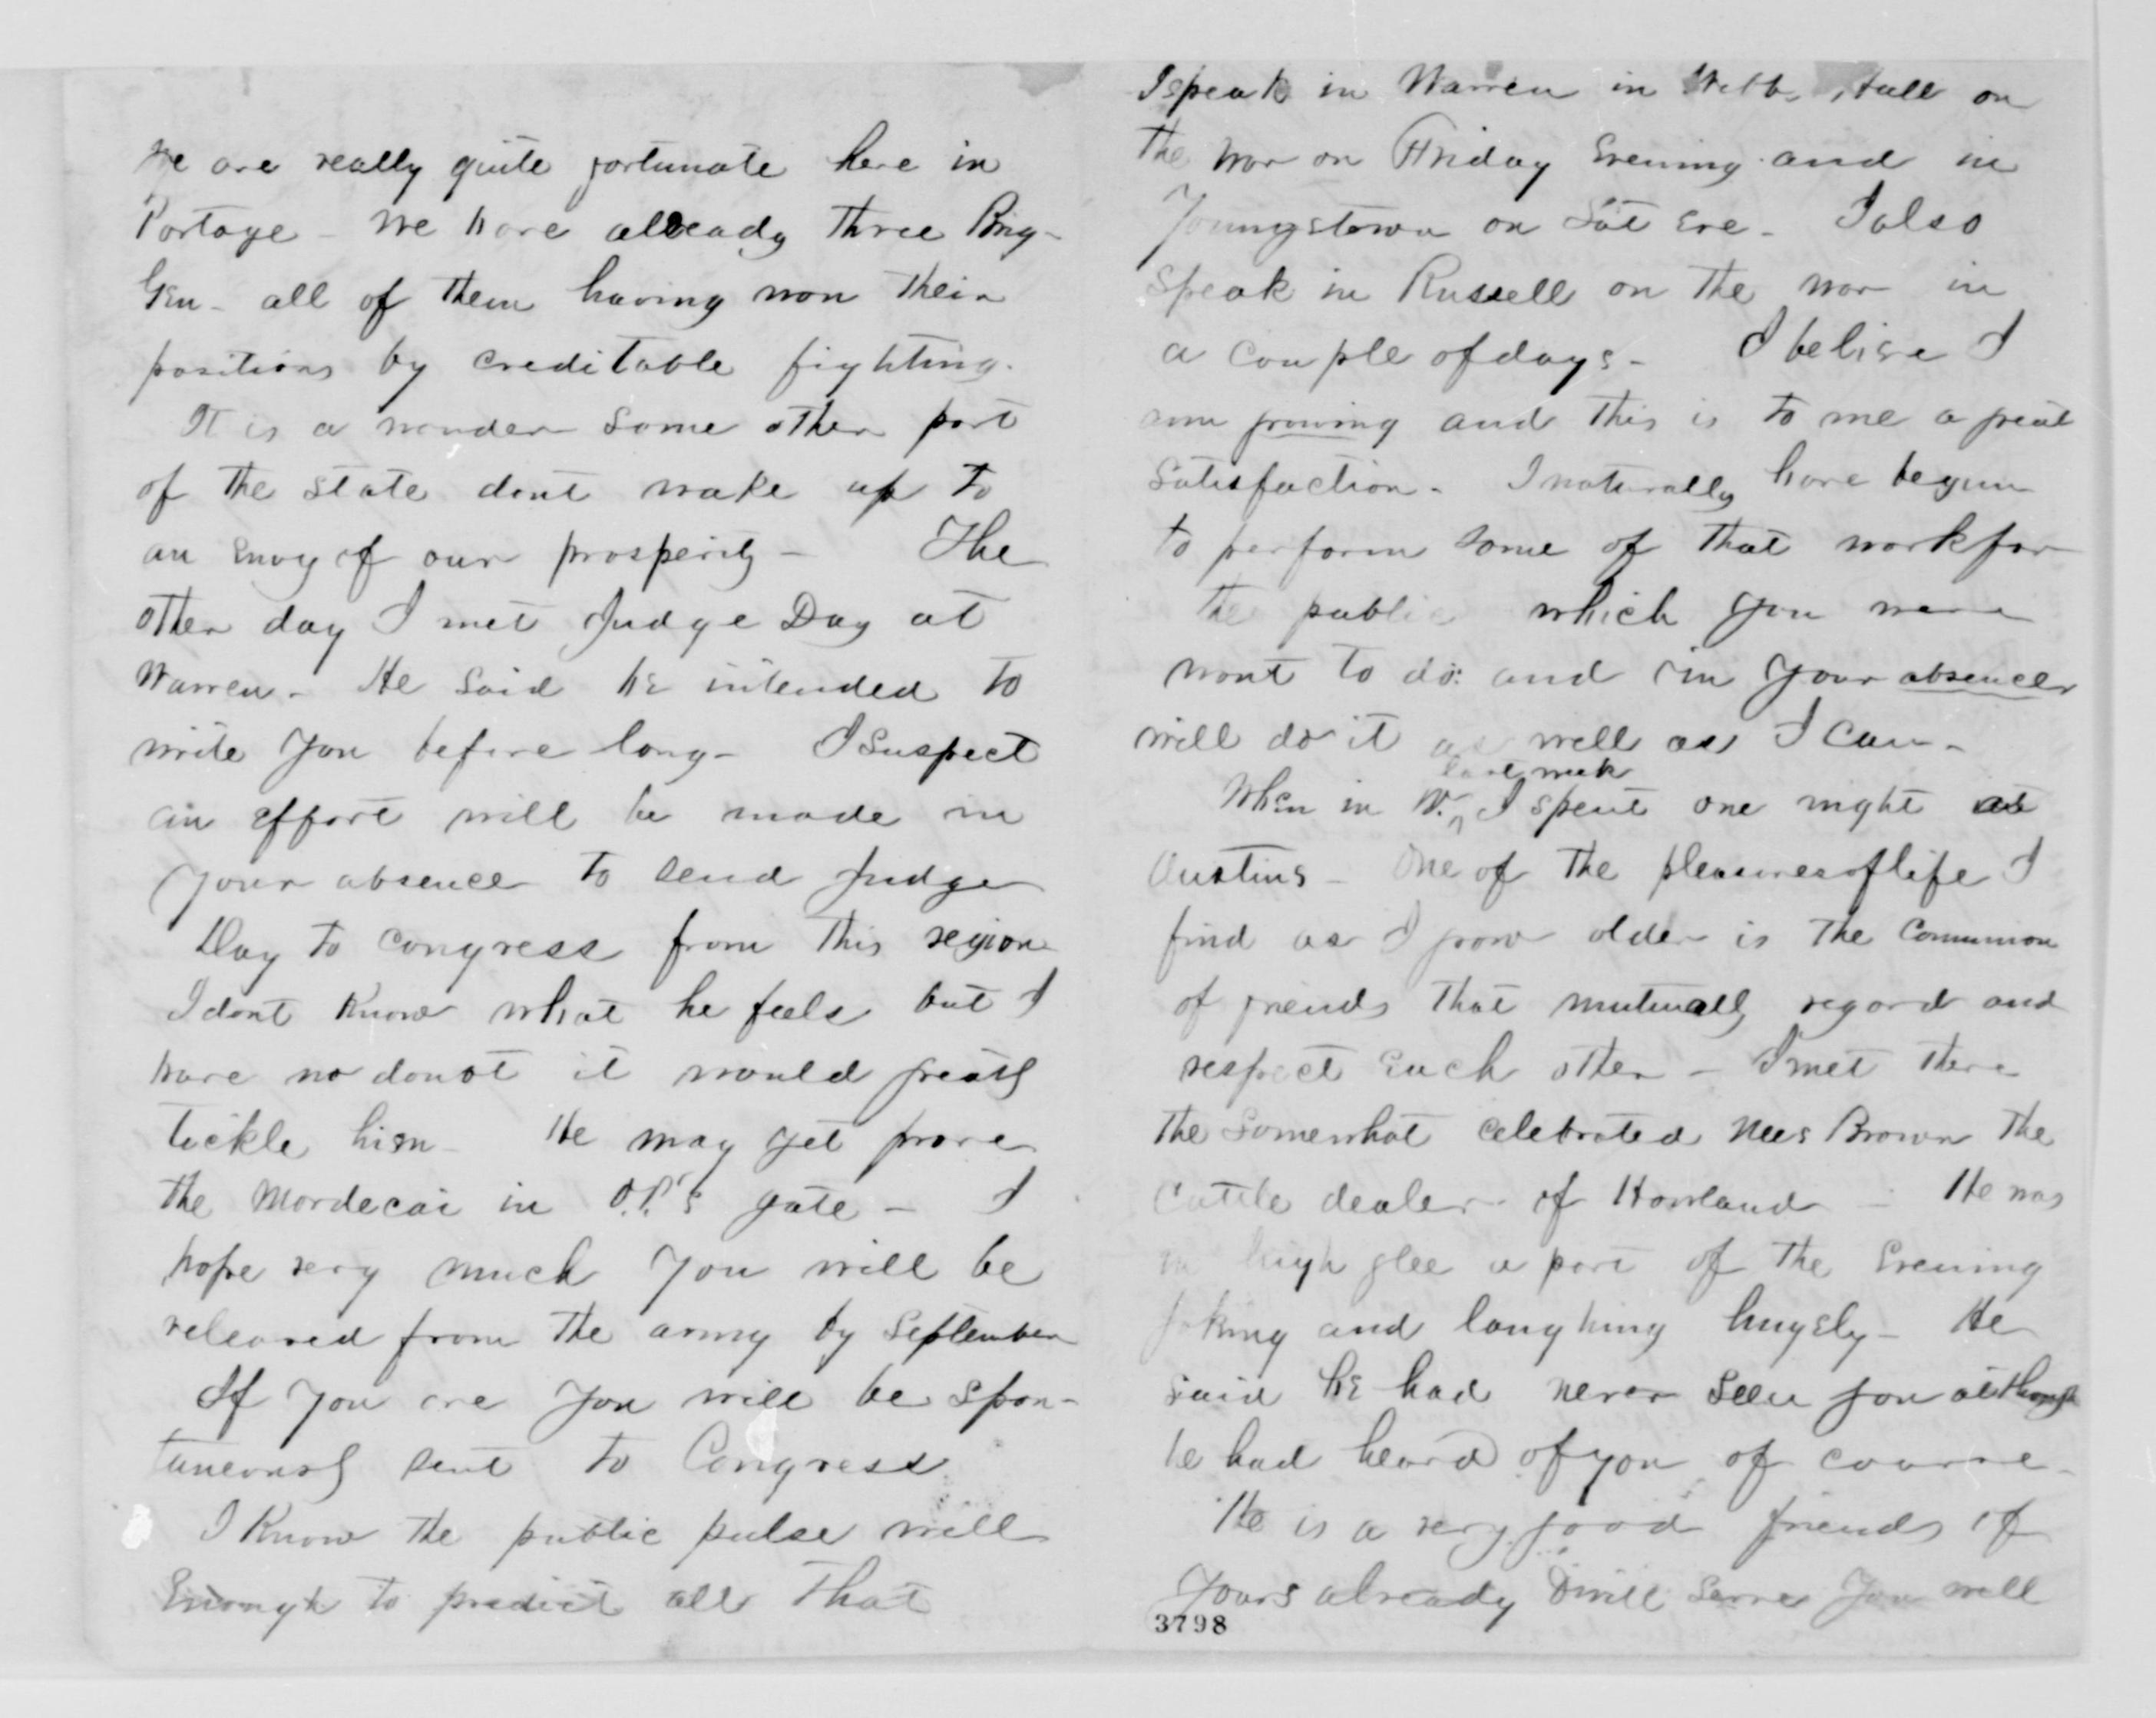 We are really quite fortunate here in
Portage - We have already three Brig-
Gen - all of them having won their
positions by creditable fighting.
It is a wonder some other part
of the State dont wake up to
an envy of our prosperity - The
other day I met Judge Day at
Warren - He said he intended to
write you before long - I suspect
an effort will be made in
your absence to send Judge
Day to Congress from this region
I dont know what he feels but I
have no doubt it would greatly
tickle him - He may yet prove
the Mordecai in O.P.'s gate - I
hope very much you will be
released from the army by September
If you are you will be spon-
taneously sent to Congress
I know the public pulse well
Enough to predict all that
I speak in Warren in Webbs Hall on
the war on Friday Evening and in
Youngstown on Sat Eve - I also
speak in Russell on the war in
a couple of days - I belive I
am growing and this is to me a great
satisfaction - I naturally have begun
to perform some of that work for
the public which you were
wont to do: and in your absence
will do it as well as I can -
last week
When in W. I spent one night at
Austins - One of the pleasures of life I
find as I grow older is the Communion
of friends that mutually regard and
respect each other - I met there
the somewhat celebrated Brown the
Cattle dealer of Howland - He was
in high glee a part of the Evening
joking and laughing hugely - He
said he had never seen you although
he had heard of you of course -
He is a very good friend of
yours already & will serve you well
3798